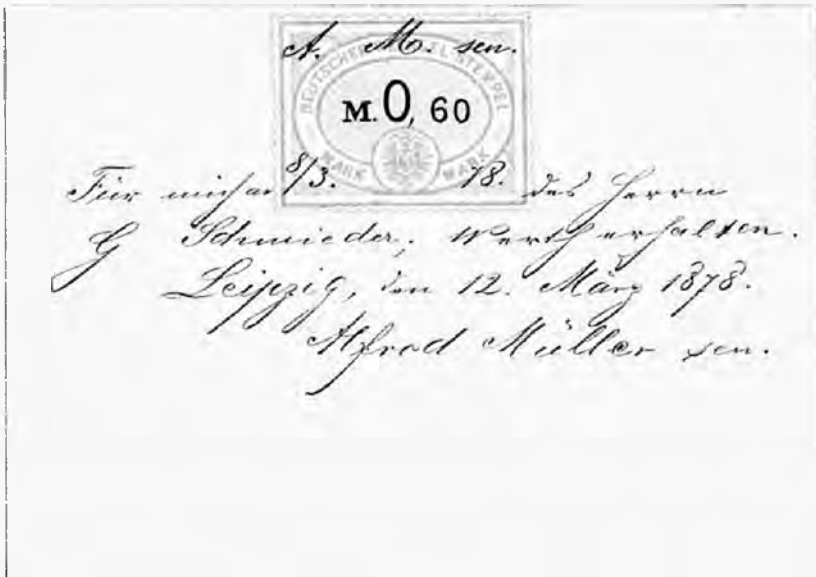 A. M. sen.
DEUTSCHER STEMPEL
M. 0, 60
MARK MARK
8/3. 78.
Für mich an des Herrn
G Schmieder; Werth erhalten.
Leipzig, den 12. März 1878.
Alfred Müller sen.